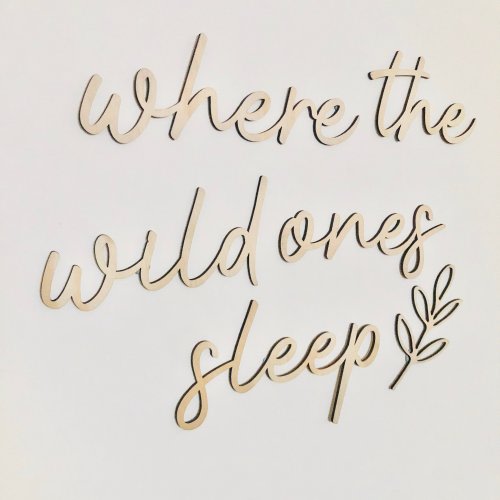 where the
wild ones
sleep